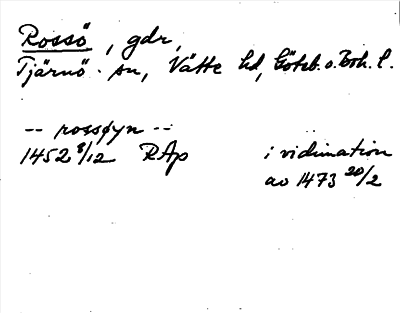 Rossö, gdr,
Tjärnö sn, Vätte hd, Göteb. o. Boh. l.
-- rossøyn --
1452 8/12 RAp i vidimation
av 1473 20/2